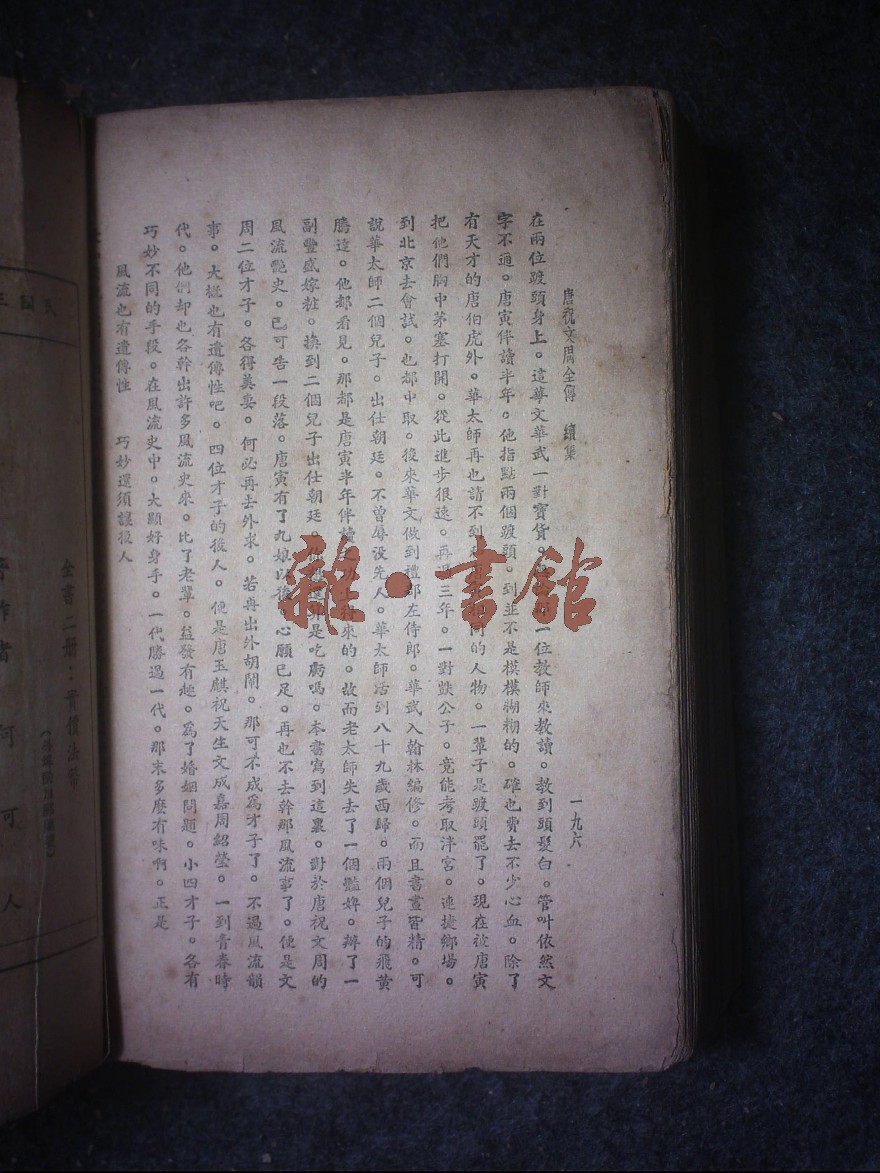 唐祝文周全傳　續集
一九六
在兩位踱頭身上。這華文華武一對寶貨。一位教師來教讀。教到頭髮白。管叫依然文
字不通。唐寅伴讀半年。他指點兩個踱頭。到並不是模模糊糊的。確也費去不少心血。除了
有天才的唐伯虎外。華太師再也請不到的人物。一輩子是踱頭罷了。現在被唐寅
把他們胸中茅塞打開。從此進步很速。再過三年。一對跌公子。竟能考取泮宮。連捷鄉場。
到北京去會試。也都中取。後來華文做到禮部左侍郎。華武入翰林編修。而且書畫皆精。可
說華太師二個兒子。出仕朝廷。不曾辱没先人。華太師活到八十九歲西歸。兩個兒子的飛黃
騰達。他都看見。那都是唐寅半年伴讀得來的。故而老太師失去了一個豔婢。辦了一
副豐盛嫁粧。換到二個兒子出仕朝廷。是吃虧嗎。本書寫到這裏。對於唐祝文周的
風流艷史。已可告一段落。唐寅有了九娘以後。心願已足。再也不去幹那風流事了。便是文
周二位才子。各得美妻。何必再去外求。若再出外胡鬧。那可不成爲才子了。不過風流韻
事。大概也有遺傳性吧。四位才子的後人。便是唐玉麒祝天生文成嘉周紹瑩。一到青春時
代。他們却也各幹出許多風流史來。比了老輩。益發有趣。爲了婚姻問題。小四才子。各有
巧妙不同的手段。在風流史中。大顯好身手。一代勝過一代。那末多麽有味啊。正是
風流也有遺傳性　巧妙還須讓後人
全書二册：實價法幣
著作者　何可人
雜·書館